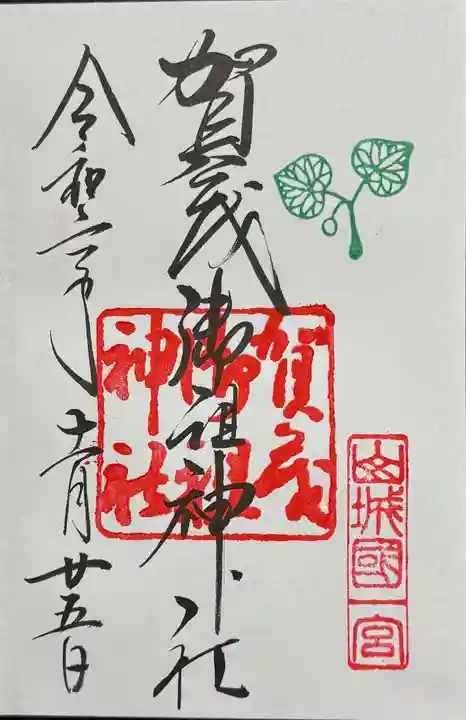 山城國一宮
賀茂御祖神社
賀茂御祖神社
令和二年十一月廿五日